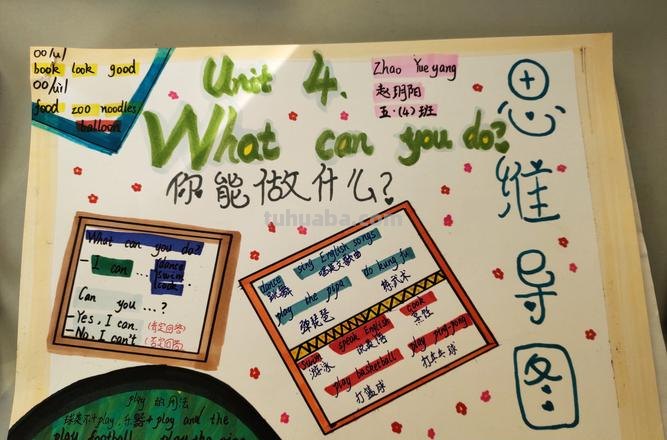 oo/u/
book look good
oo/u:/
food zoo noodles
balloon
Unit 4.
What can you do?
你能做什么?
Zhao Yueyang
赵玥阳
五·(4)班
思维导图
tuhuaba.com
What can you do?
- I can ... dance
swim
cook
Can you ...?
- Yes, I can. (肯定回答)
- No, I can't (否定回答)
dance sing English songs
跳舞 唱英文歌曲
play the pipa do kung fu
弹琵琶 练武术
swim speak English cook
游泳 说英语 烹饪
play basketball play ping-pong
打篮球 打乒乓球
play 的用法
球类不+play, 乐器+play and the
play football play the pipa